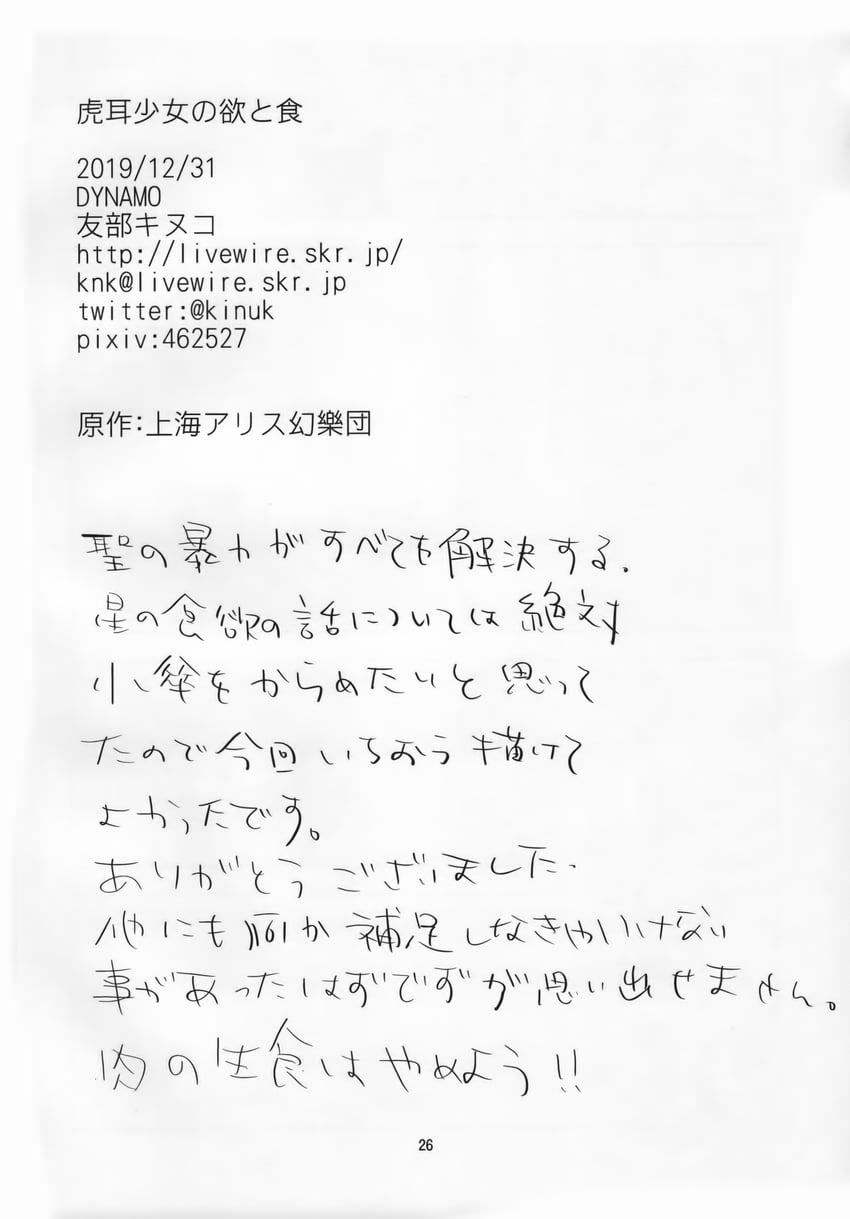 虎耳少女の欲と食
2019/12/31
DYNAMO
友部キヌコ
http://livewire.skr.jp/
knk@livewire.skr.jp
twitter:@kinuk
pixiv:462527
原作:上海アリス幻樂団
聖の暴力がすべてを解決する.
星の食欲の話については絶対
小傘をからめたいと思って
たので今回いちおう描けて
よかったです。
ありがとうございました.
他にも何か補足しなきゃいけない
事があったはずですが思い出せません。
肉の生食はやめよう!!
26